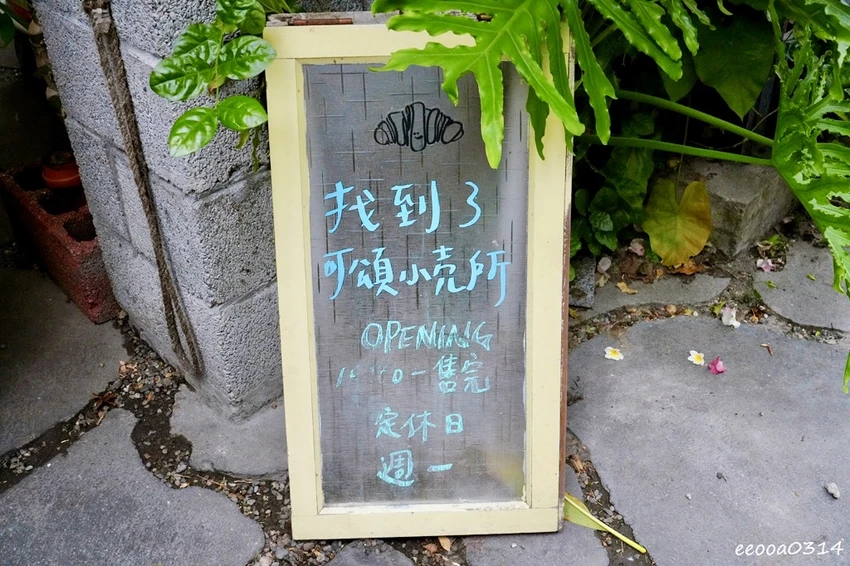 找到了
可頌小売所
OPENING
-售完
定休日
週一
eeooa0314